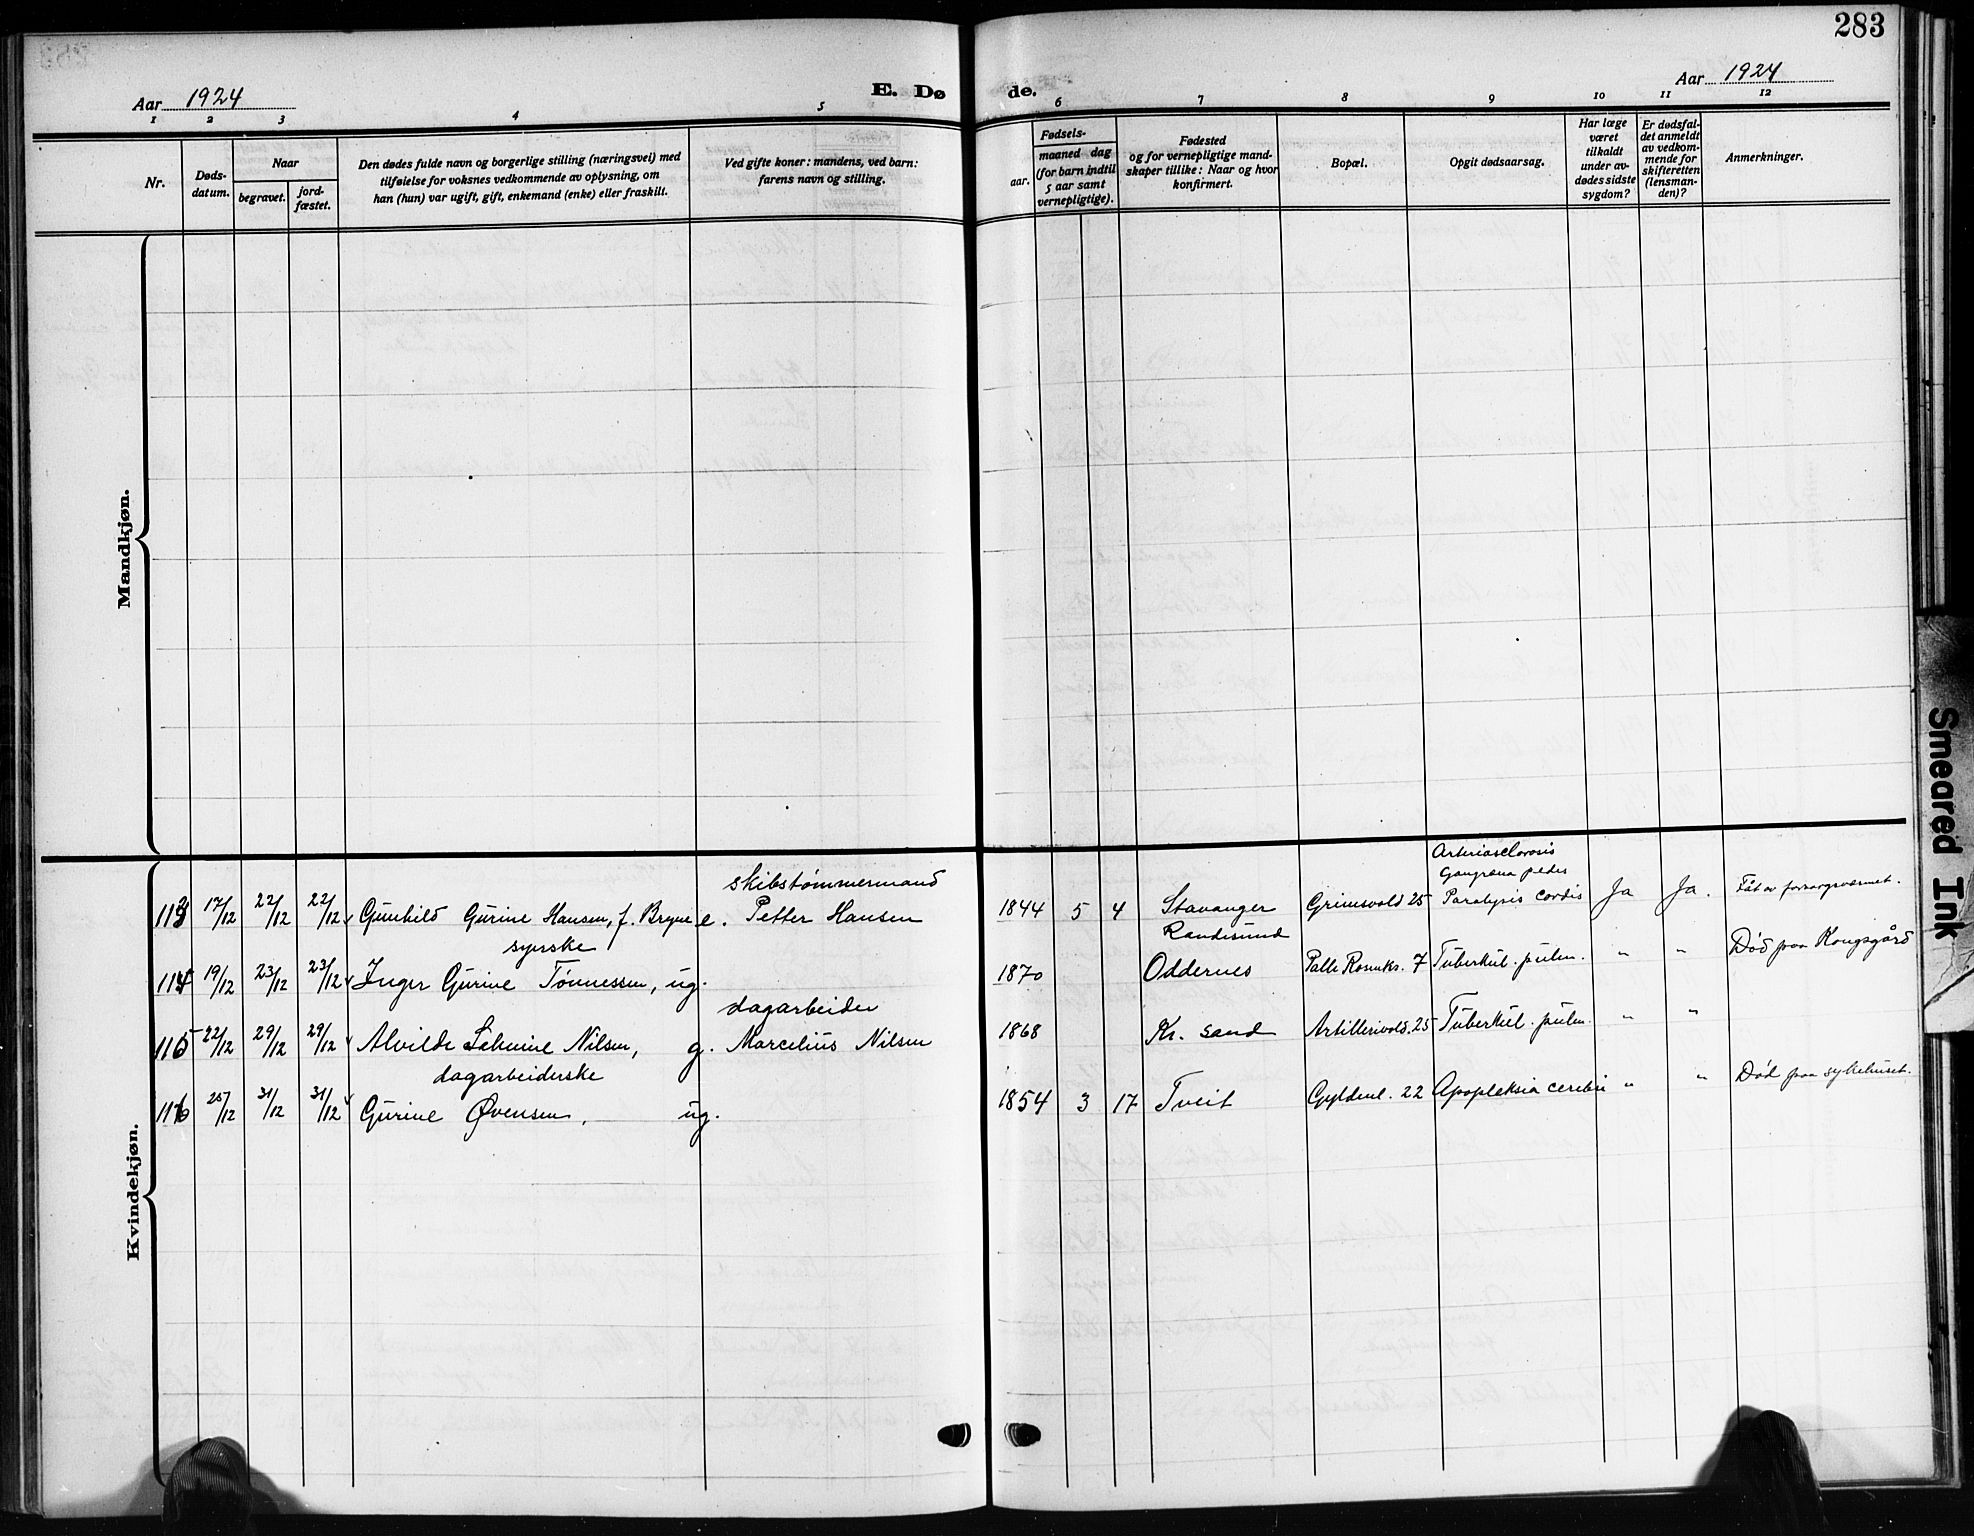 283
Aar 1924
E. Dø
de.
Aar 1924
1 2 3 4 5 6 7 8 9 10 11 12
Nr.
Døds-
datum.
Naar
begravet.
jord-
fæstet.
Den dødes fulde navn og borgerlige stilling (næringsvei) med
tilføielse for voksnes vedkommende av oplysning, om
han (hun) var ugift, gift, enkemand (enke) eller fraskilt.
Ved gifte koner: mandens, ved barn:
farens navn og stilling.
Fødsels-
aar.
maaned dag
(for barn indtil
5 aar samt
vernepligtige).
Fødested
og for vernepligtige mand-
skaper tillike: Naar og hvor
konfirmert.
Bopæl.
Opgit dødsaarsag.
Har læge
været
tilkaldt
under av-
dødes sidste
sygdom?
Er dødsfal-
det anmeldt
av vedkom-
mende for
skifteretten
(lensman-
den)?
Anmerkninger.
Mandkjøn.
Kvindekjøn.
skibstømmermand
Arteriosclorosis
Gangræna pedis
113 17/12 22/12 22/12 Gunhild Gurine Hansen, f. Bryne e. Petter Hansen 1844 5 4 Stavanger Grimsvold 25 Paralysis cordis Ja Ja. Fåt av forsorgsvæsenet.
syerske
Randesund
114 19/12 23/12 23/12 Inger Gurine Tønnessen, ug. 1870 Oddernes Palle Rosenks. 7 Tuberkul. pulm. " " Død paa Kongsgård
dagarbeider
115 22/12 29/12 29/12 Alvilde Nilsen, g. Marcelius Nilsen 1868 Kr. sand Artillerivold. 25 Tuberkul. pulm. " "
dagarbeiderske
116 25/12 31/12 31/12 Gurine Øvensen, ug. 1854 3 17 Tveit Gyldenl. 22 Apopleksia cerebri " " Død paa sykehuset.
Smeared Ink